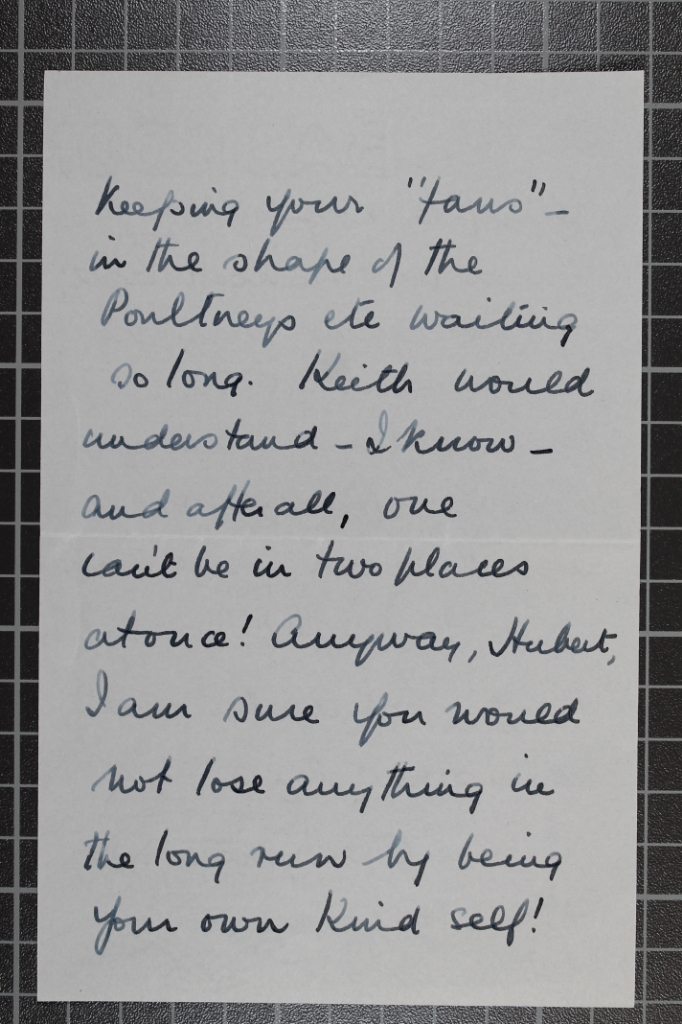 Keeping your "fans" -
in the shape of the
Poultneys etc waiting
so long. Keith would
understand - I know -
and after all, one
can't be in two places
at once! Anyway, Hubert,
I am sure you would
not lose anything in
the long run by being
your own kind self!